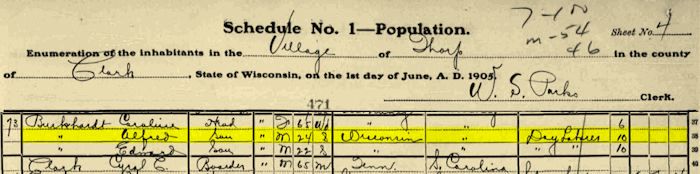 7-100
Schedule No. 1—Population.
m-54
46
Sheet No. 4
Enumeration of the inhabitants in the Village of Thorp in the county
of Clark, State of Wisconsin, on the 1st day of June, A. D. 1905.
W. S. Parks Clerk.
471
73 Burkhardt Caroline Head " F 65 Wd " " 6 37
" Alfred Son " M 24 S Wisconsin " Day Laborer 10 38
" Edward Son " M 22 S " " " 10 39
Clark Cyrel C. Boarder " M 65 M Tenn. S. Carolina 40